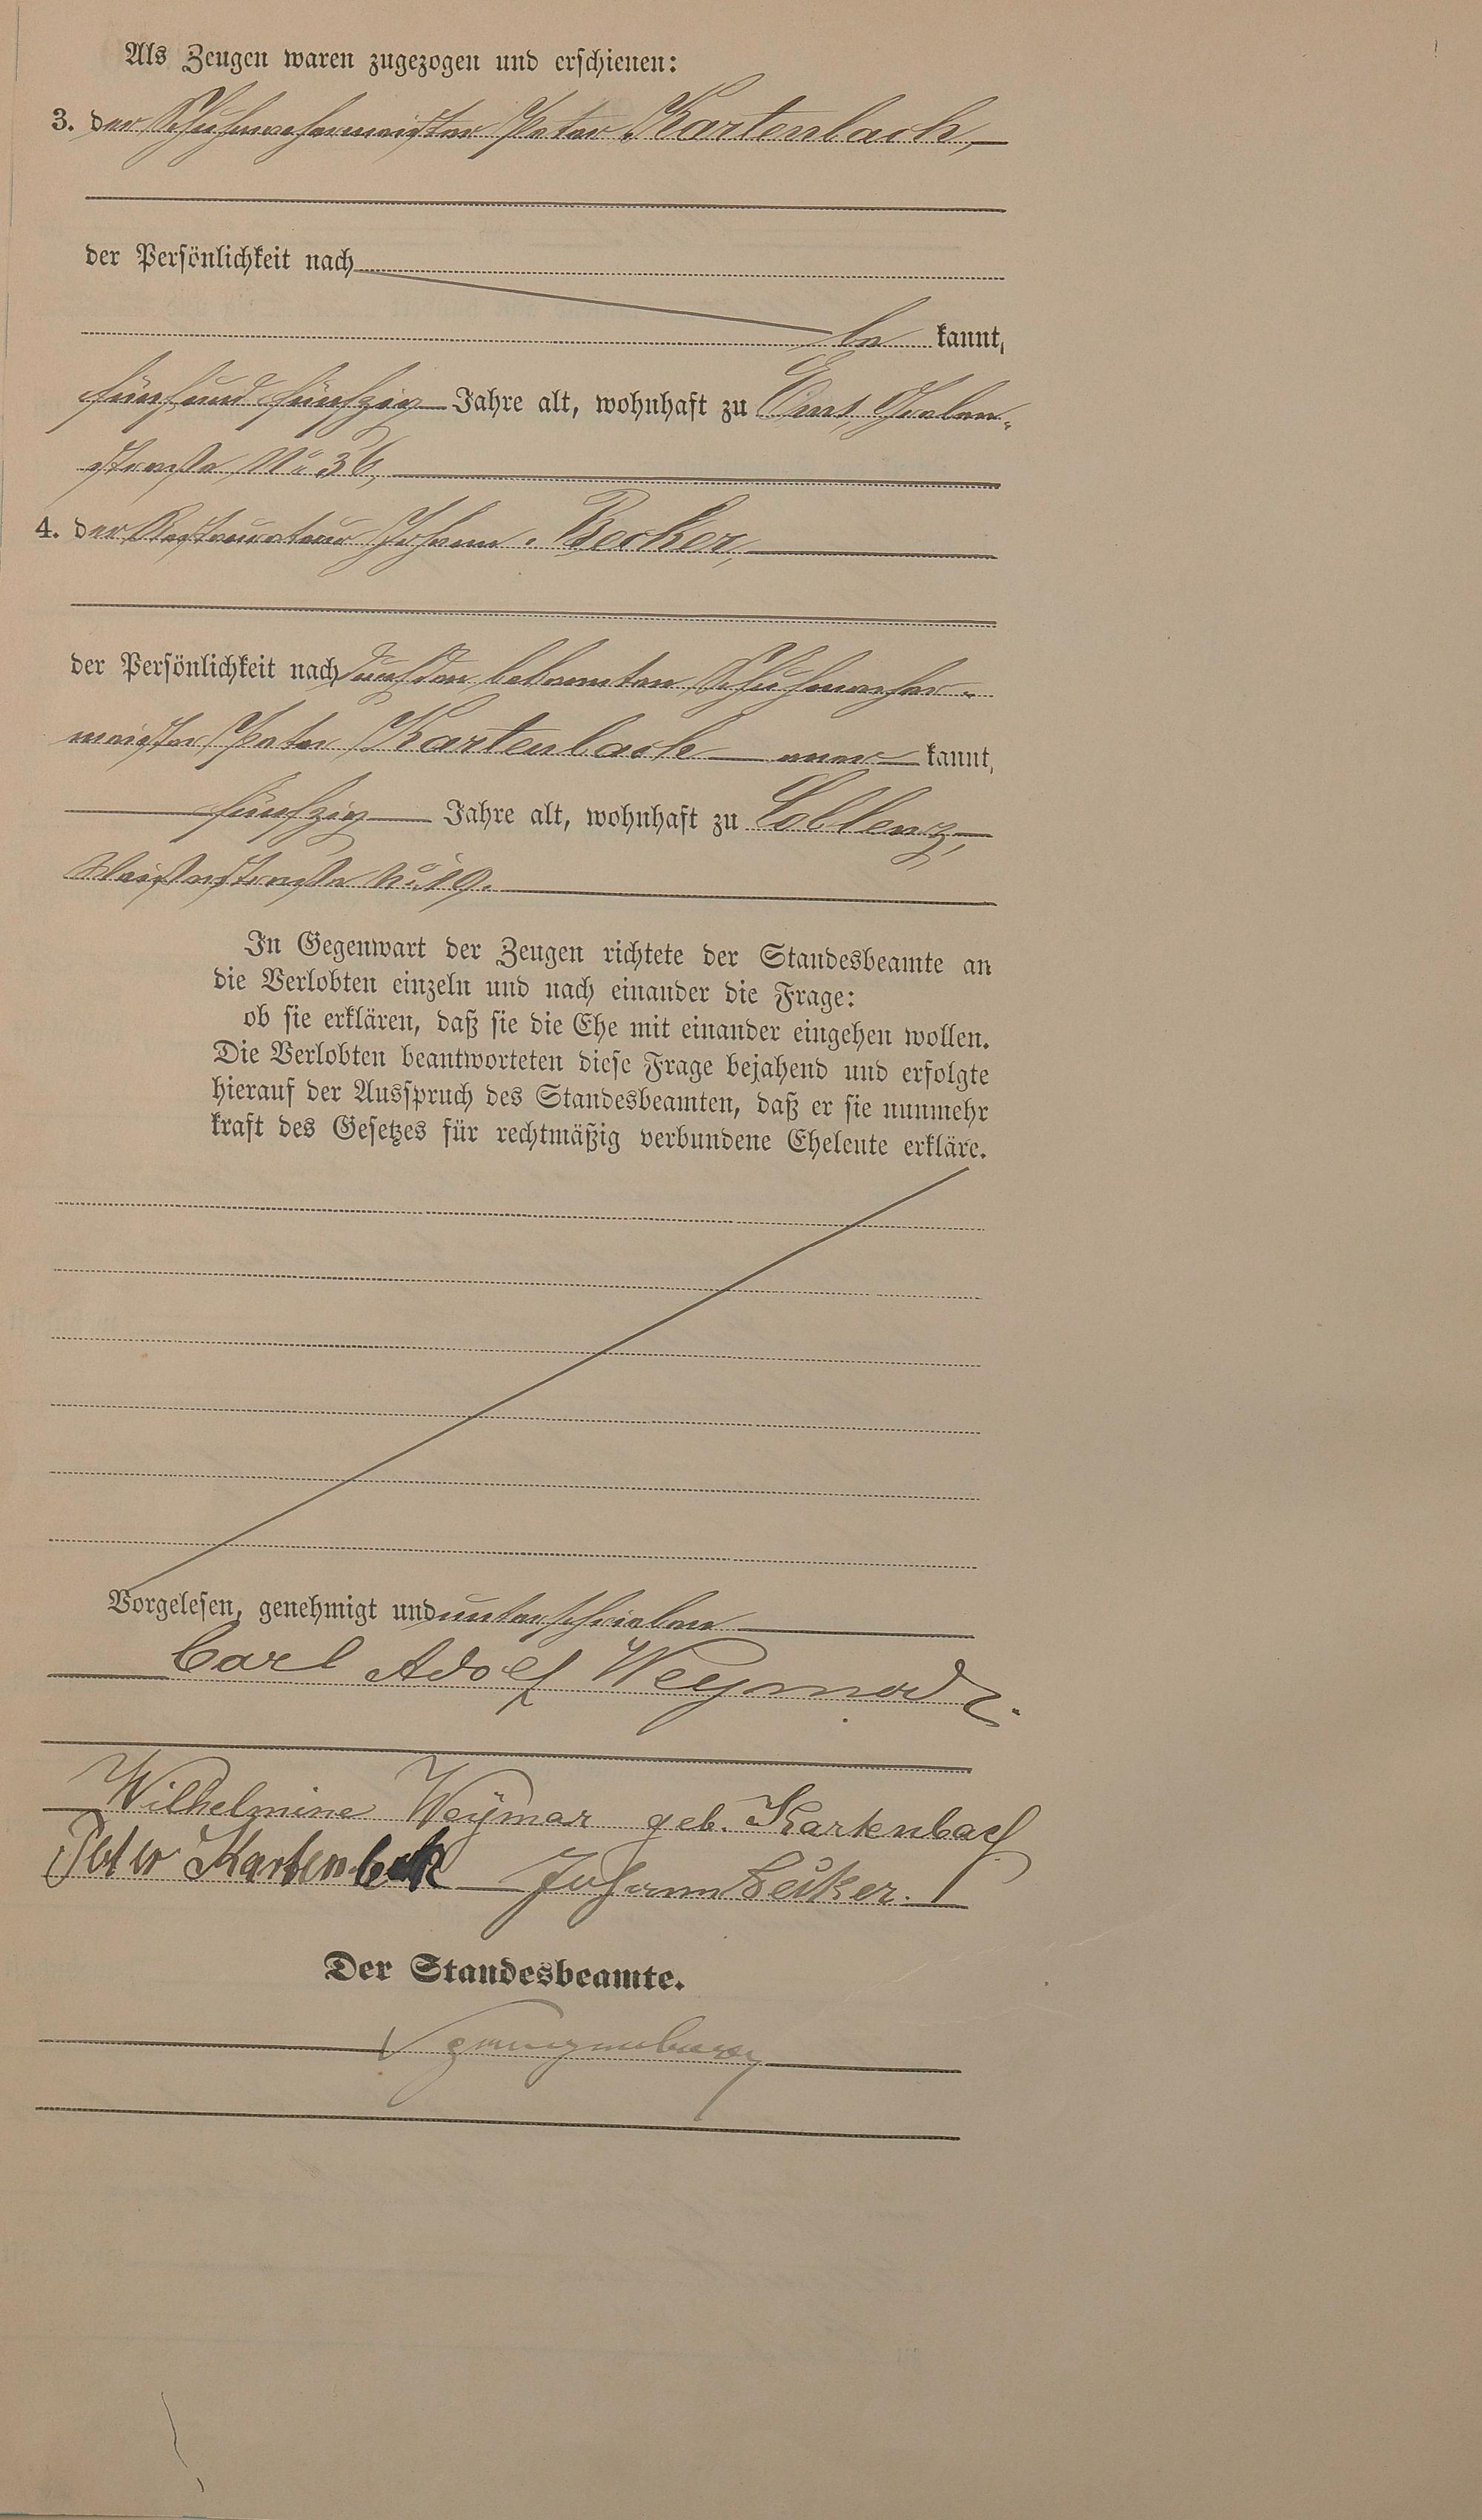 Als Zeugen waren zugezogen und erschienen:
3. der Schuhmachermeister Peter Kartenbach,
der Persönlichkeit nach
be kannt,
fünf und fünfzig Jahre alt, wohnhaft zu Ems, Graben-
straße No 36,
4. der Restaurateur Johann Becker,
der Persönlichkeit nach durch den bekannten Schuhmacher-
meister Peter Kartenbach aner kannt,
fünfzig Jahre alt, wohnhaft zu Coblenz,
No 19.
In Gegenwart der Zeugen richtete der Standesbeamte an
die Verlobten einzeln und nach einander die Frage:
ob sie erklären, daß sie die Ehe mit einander eingehen wollen.
Die Verlobten beantworteten diese Frage bejahend und erfolgte
hierauf der Ausspruch des Standesbeamten, daß er sie nunmehr
kraft des Gesetzes für rechtmäßig verbundene Eheleute erkläre.
Vorgelesen, genehmigt und unterschrieben
Carl Adolf Weymar
Wilhelmine Weymar geb. Kartenbach
Peter Kartenbach Johann Becker.
Der Standesbeamte.